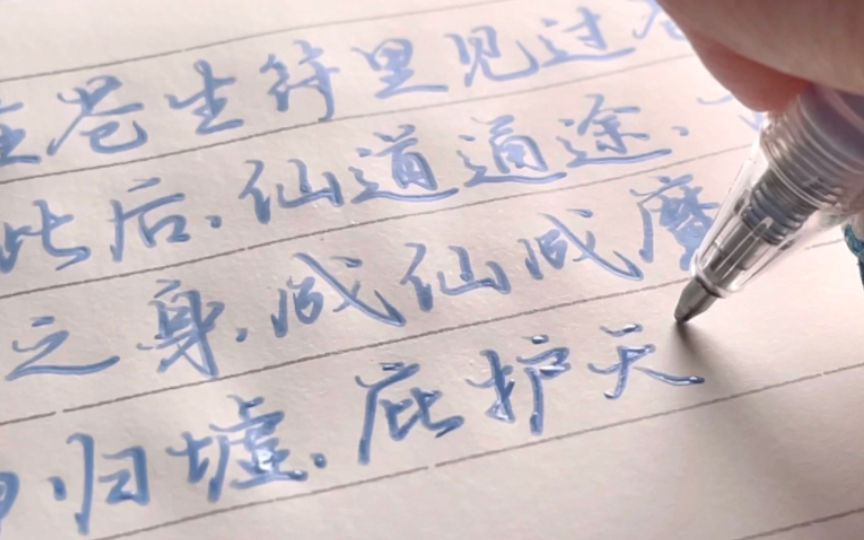 苍生符里见过
此后.仙道通途、
之身.成仙成魔
归墟.庇护天